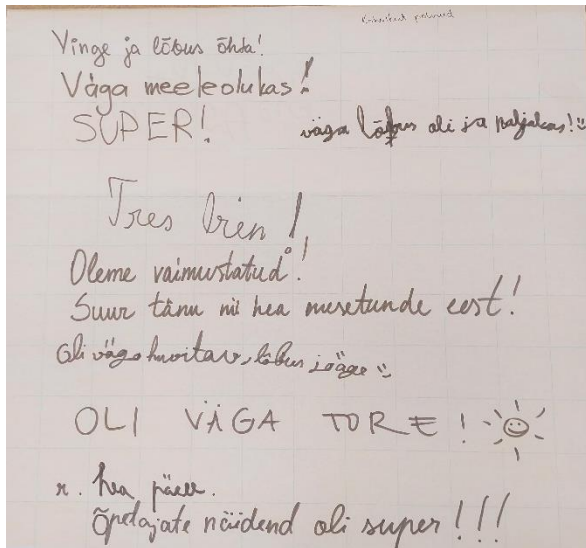 Vinge ja lõbus õhta!
Väga meeleolukas!
SUPER!
väga lõbus oli ja naljakas! :)
Tres bien!
Oleme vaimustatud!
Suur tänu nii hea enesetunde eest!
Oli väga huvitav, lõbus ja äge :)
OLI VÄGA TORE!
r. hea päev.
Õpetajate näidend oli super!!!